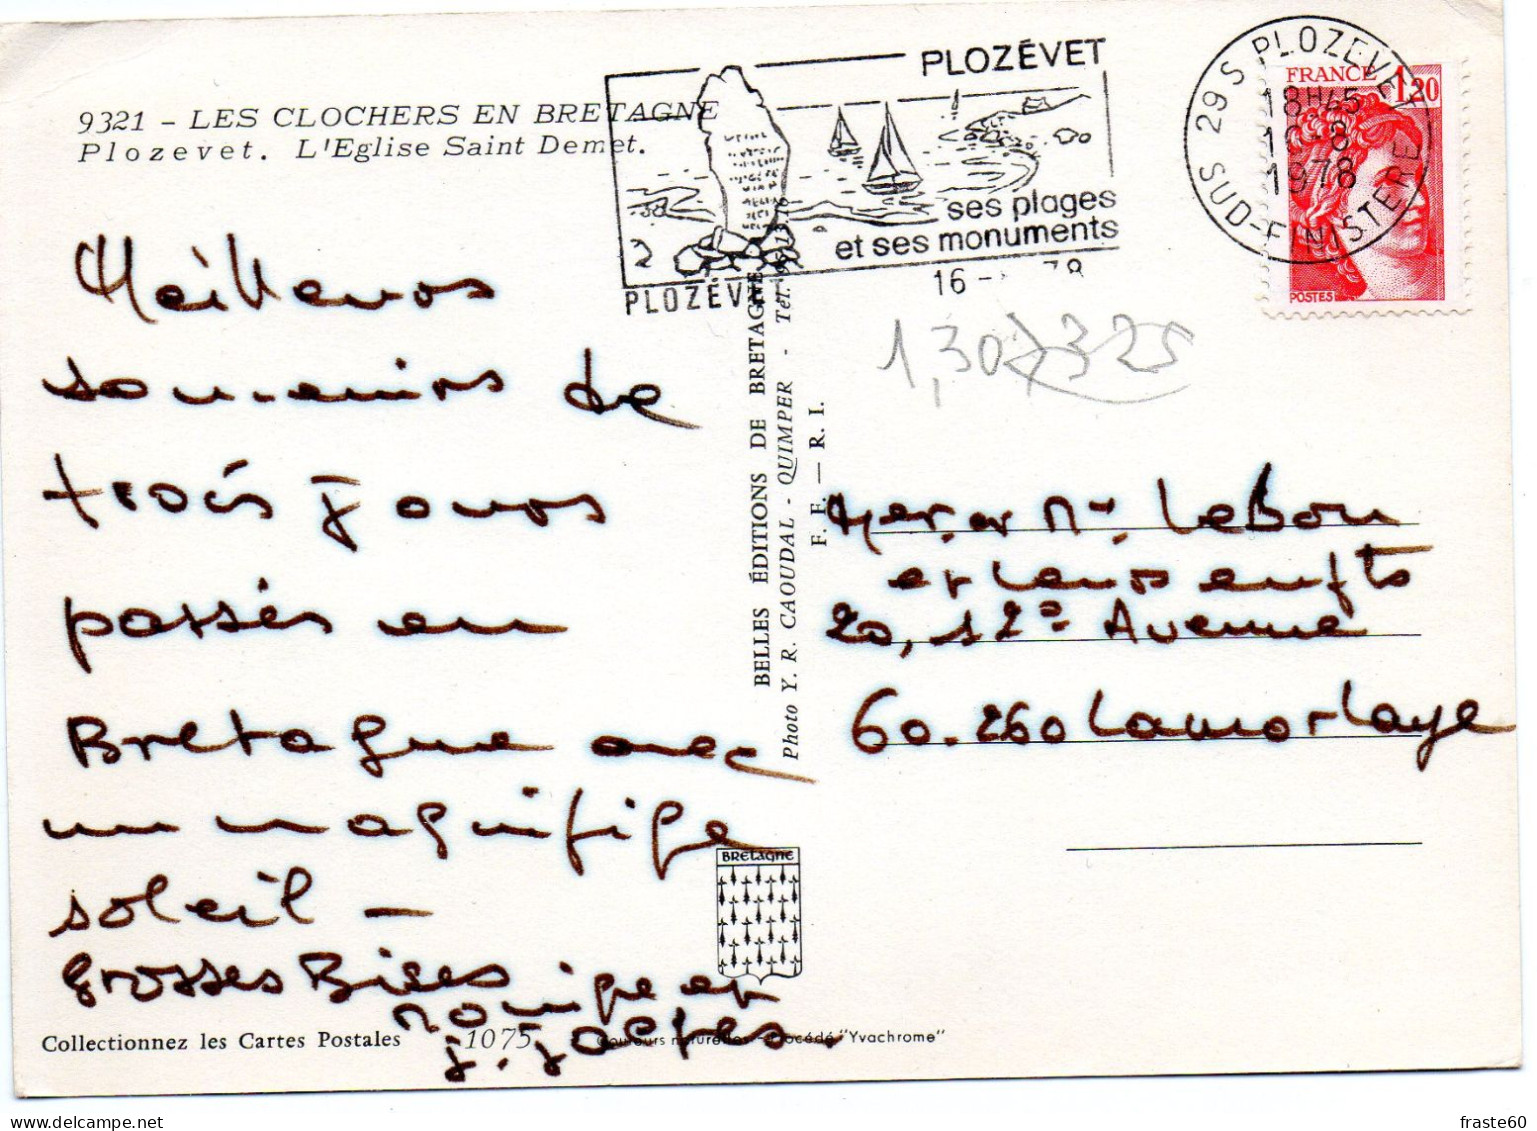 9321 - LES CLOCHERS EN BRETAGNE
Plozevet. L'Eglise Saint Demet.
PLOZÉVET
ses plages
et ses monuments
PLOZÉVET
16 - 78
29 S PLOZEVET
18H45
16 - 8
1978
SUD-FINISTERE
FRANCE 1,20
POSTES
1,30 325
Meilleurs
souvenirs de
trois jours
passés en
Bretagne avec
un magnifique
soleil -
Grosses Bises
et
J. Jacques
Mer et Mr Lebon
et leurs enfts
20, 12e Avenue
60.260 Lamorlaye
BELLES ÉDITIONS DE BRETAGNE
Photo Y. R. CAOUDAL - QUIMPER - Tél. 95.13.10
F. F. — R. I.
BRETAGNE
Collectionnez les Cartes Postales 1075 Couleurs naturelles - Procédé "Yvachrome"
fraste60